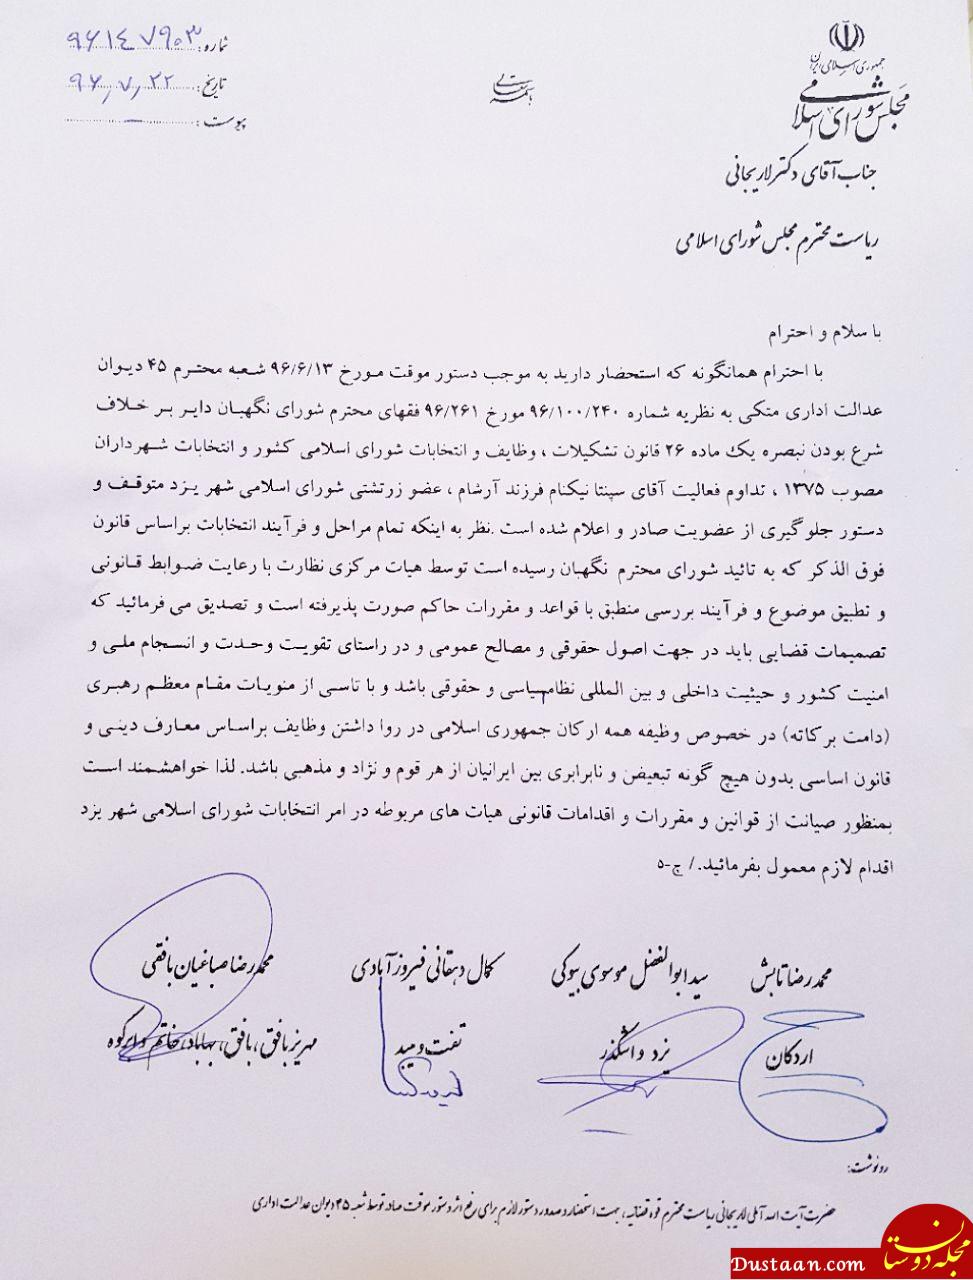 جمهوری اسلامی ایران
مجلس شورای اسلامی
باسمه تعالی
شماره: ۹۶۱۴۷۹۰۳
تاریخ: ۹۶,۷,۲۲
پیوست: —
جناب آقای دکتر لاریجانی
ریاست محترم مجلس شورای اسلامی
با سلام و احترام
با احترام همانگونه که استحضار دارید به موجب دستور موقت مورخ ۹۶/۶/۱۳ شعبه محترم ۴۵ دیوان
عدالت اداری متکی به نظریه شماره ۹۶/۱۰۰/۲۴۰ مورخ ۹۶/۲۶۱ فقهای محترم شورای نگهبان دایر بر خلاف
شرع بودن تبصره یک ماده ۲۶ قانون تشکیلات ، وظایف و انتخابات شورای اسلامی کشور و انتخابات شهرداران
مصوب ۱۳۷۵ ، تداوم فعالیت آقای سپنتا نیکنام فرزند آرشام ، عضو زرتشتی شورای اسلامی شهر یزد متوقف و
دستور جلوگیری از عضویت صادر و اعلام شده است .نظر به اینکه تمام مراحل و فرآیند انتخابات براساس قانون
فوق الذکر که به تائید شورای محترم نگهبان رسیده است توسط هیات مرکزی نظارت با رعایت ضوابط قانونی
و تطبیق موضوع و فرآیند بررسی منطبق با قواعد و مقررات حاکم صورت پذیرفته است و تصدیق می فرمائید که
تصمیمات قضایی باید در جهت اصول حقوقی و مصالح عمومی و در راستای تقویت وحدت و انسجام ملی و
امنیت کشور و حیثیت داخلی و بین المللی نظام سیاسی و حقوقی باشد و با تاسی از منویات مقام معظم رهبری
(دامت برکاته) در خصوص وظیفه همه ارکان جمهوری اسلامی در روا داشتن وظایف براساس معارف دینی و
قانون اساسی بدون هیچ گونه تبعیض و نابرابری بین ایرانیان از هر قوم و نژاد و مذهبی باشد. لذا خواهشمند است
بمنظور صیانت از قوانین و مقررات و اقدامات قانونی هیات های مربوطه در امر انتخابات شورای اسلامی شهر یزد
اقدام لازم معمول بفرمائید./ ج-۵
محمدرضا تابش
سید ابوالفضل موسوی بیوکی
کمال دهقانی فیروزآبادی
محمدرضا صباغیان بافقی
اردکان
یزد و اشکذر
تفت و میبد
مهریز بافق، بافق، بهاباد، خاتم و ابرکوه
رونوشت:
حضرت آیت اله آملی لاریجانی ریاست محترم قوه قضائیه، جهت استحضار و صدور دستور لازم برای رفع اثر دستور موقت صادره توسط شعبه ۴۵ دیوان عدالت اداری
مجله دوستان
Dustaan.com